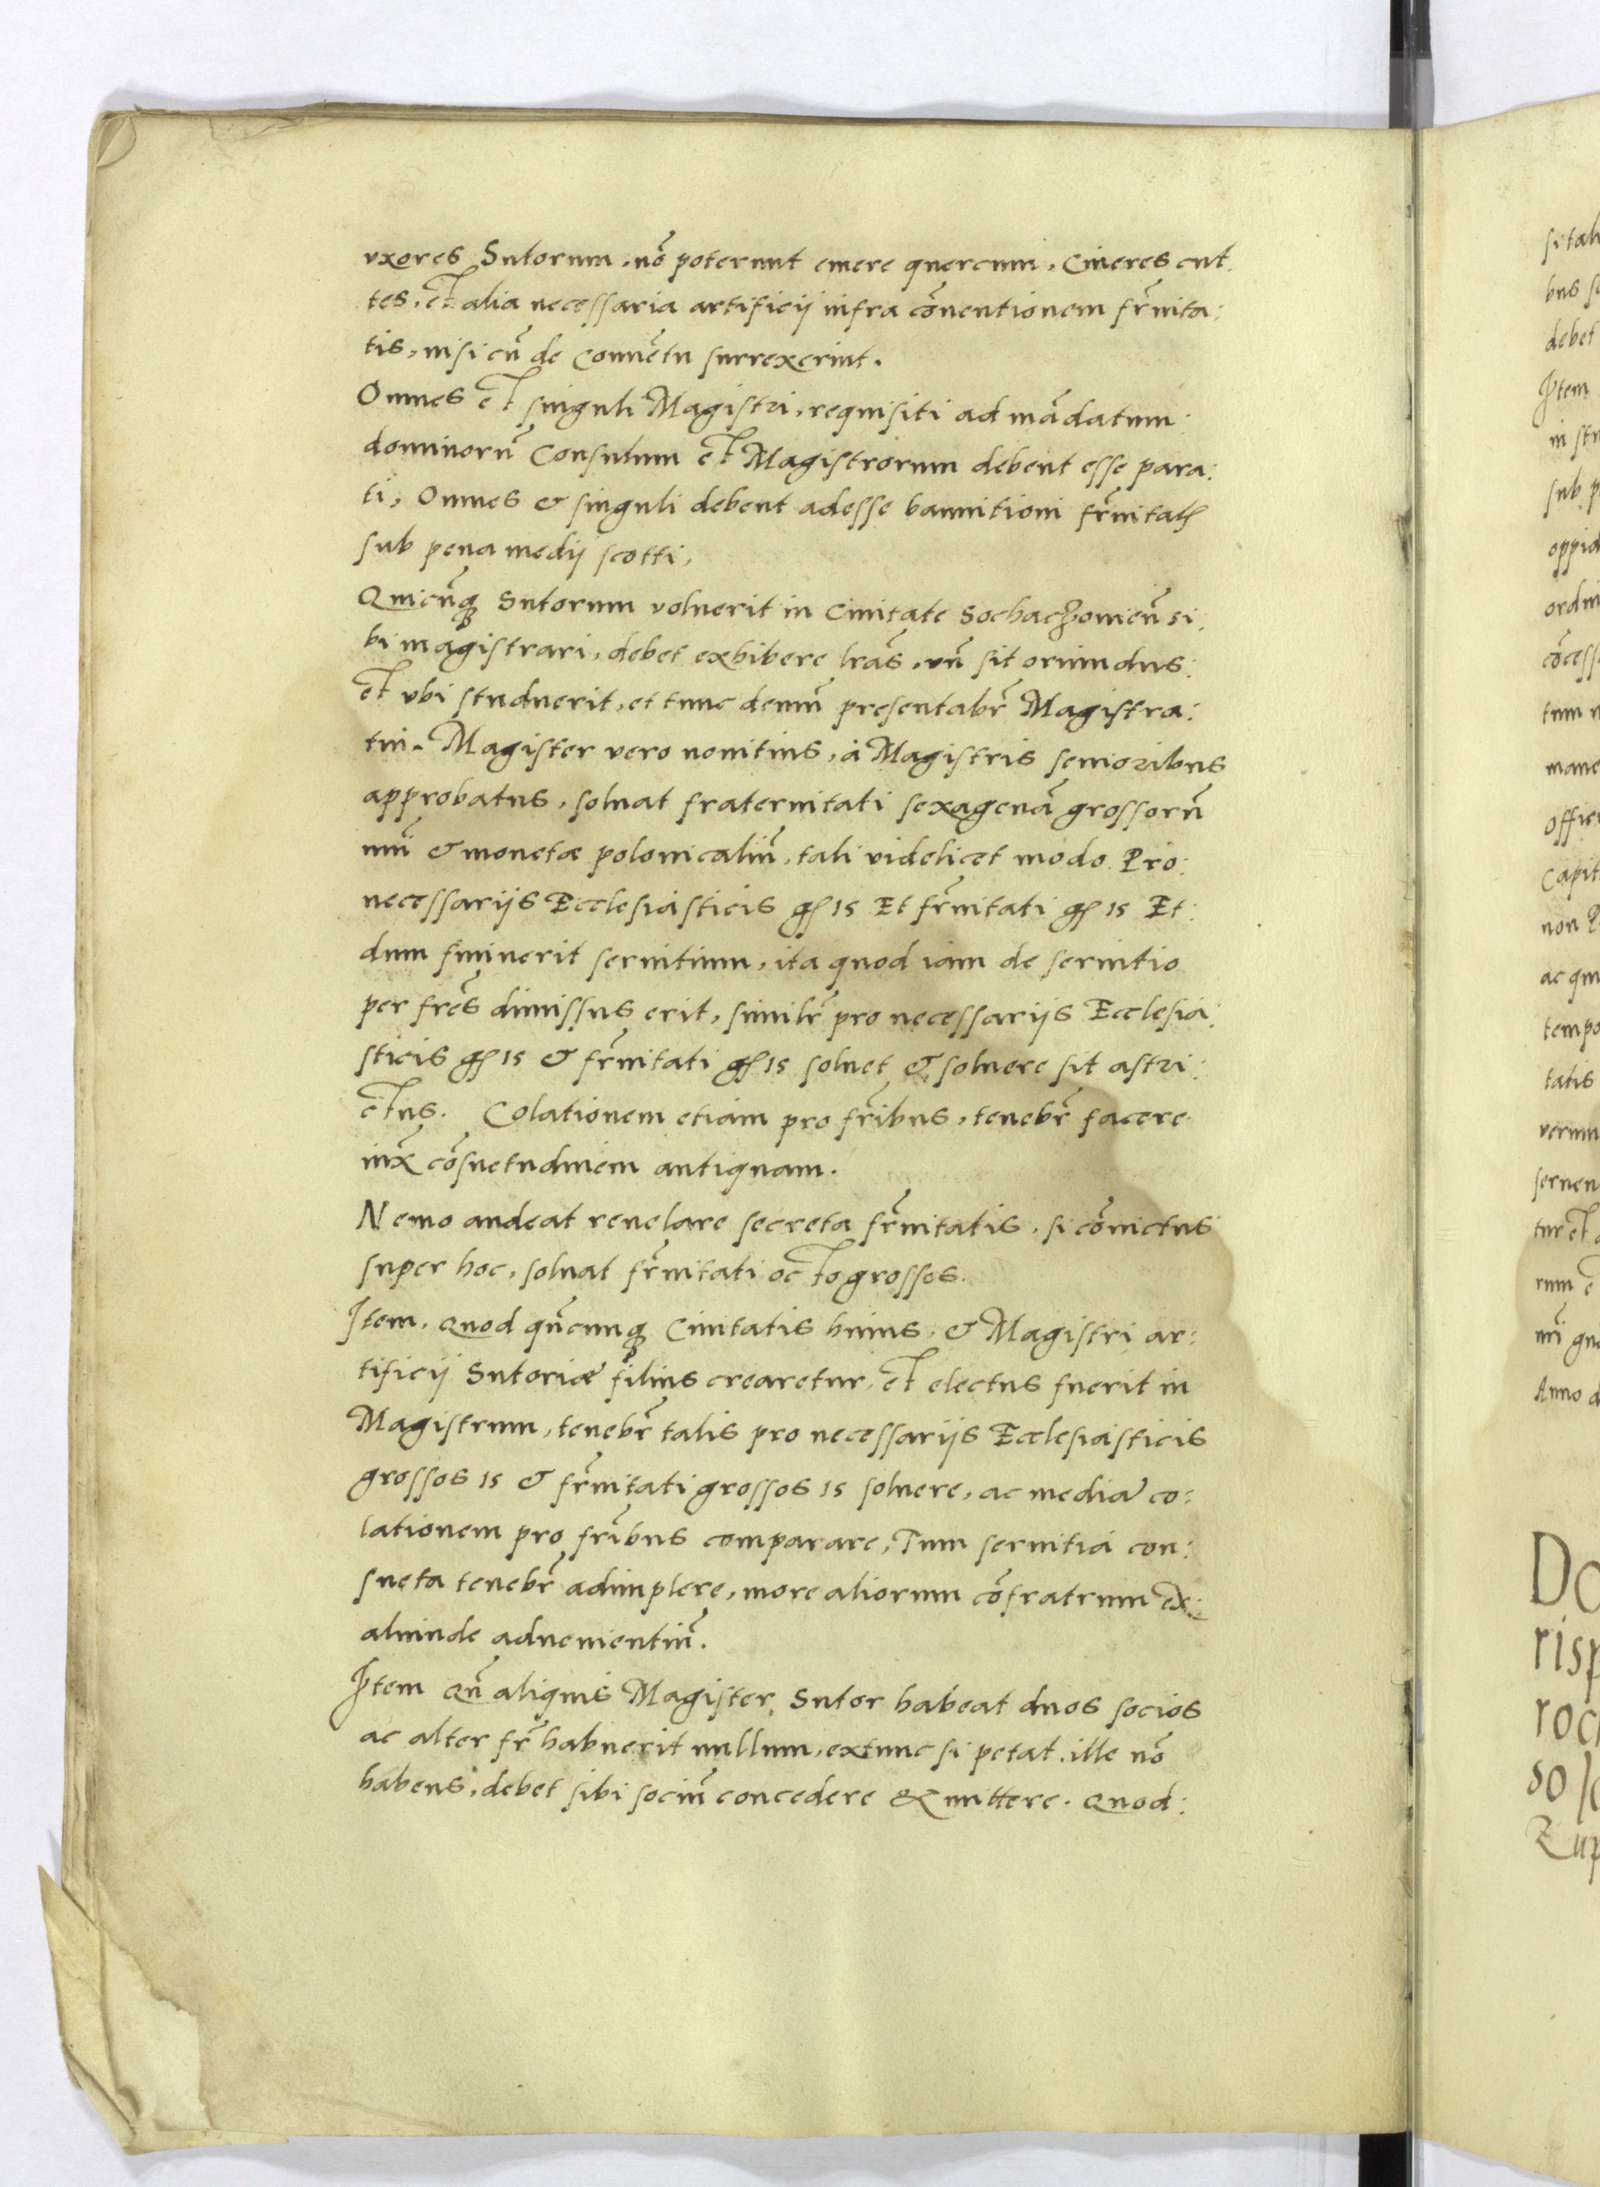 vxores Sutorum, nõ poterunt emere quercum, Cineres cut
tes, et alia necessaria artificij infra cõuentionem fr̃nita:
tis, nisi cũ de Conuẽtu surrexerint.
Omnes et singuli Magistri, requisiti ad mãdatum:
dominorũ Consulum et Magistrorum debent esse para:
ti, Omnes & singuli debent adesse bannitioni fr̃nitatis
sub pena medij scotti,
Quicũq Sutorum voluerit in Ciuitate Sochaczouieñ si:
bi magistrari, debet exhibere lr̃as, vñ sit oriundus:
et vbi studuerit, et tunc demũ presentabr̃ Magistra:
tui. Magister vero nouitius, à Magistris senioribus
approbatus, soluat fraternitati sexagenã grossorũ
nũi & monetæ polonicaliũ, tali videlicet modo. Pro:
necessarijs Ecclesiasticis gs 15 Et fr̃nitati gs 15 Et:
dum finiuerit seruitium, ita quod iam de seruitio
per fr̃es dimissus erit, similr̃ pro necessarijs Ecclesia:
sticis gs 15 & fr̃nitati gs 15 soluet & soluere sit astri:
ctus. Colationem etiam pro fr̃ibus, tenebr̃ facere
iux̃ cõsuetudinem antiquam.
Nemo audeat reuelare secreta fr̃nitatis, si cõuictus
super hoc, soluat fr̃nitati octo grossos.
Item, quod qñcunq Ciuitatis huius, & Magistri ar:
tificij Sutoriæ filius crearetur, et electus fuerit in
Magistrum, tenebr̃ talis pro necessarijs Ecclesiasticis
grossos 15 & fr̃nitati grossos 15 soluere, ac mediã co:
lationem pro fr̃ibus comparare, Tum seruitia con:
sueta tenebr̃ adimplere, more aliorum cõfratrum ex:
aliunde aduenientiũ.
Item Qñ aliquis Magister Sutor habeat duos socios
ac alter fr̃ habuerit nullum, extunc si petat ille nõ
habens, debet sibi sociũ concedere & mittere. Quod:
sitali
bus
debet
Item
in
sub
ordin
tum
non
ac
tempo
tatis
rum
Anno d
Do
risp
roc
Zup